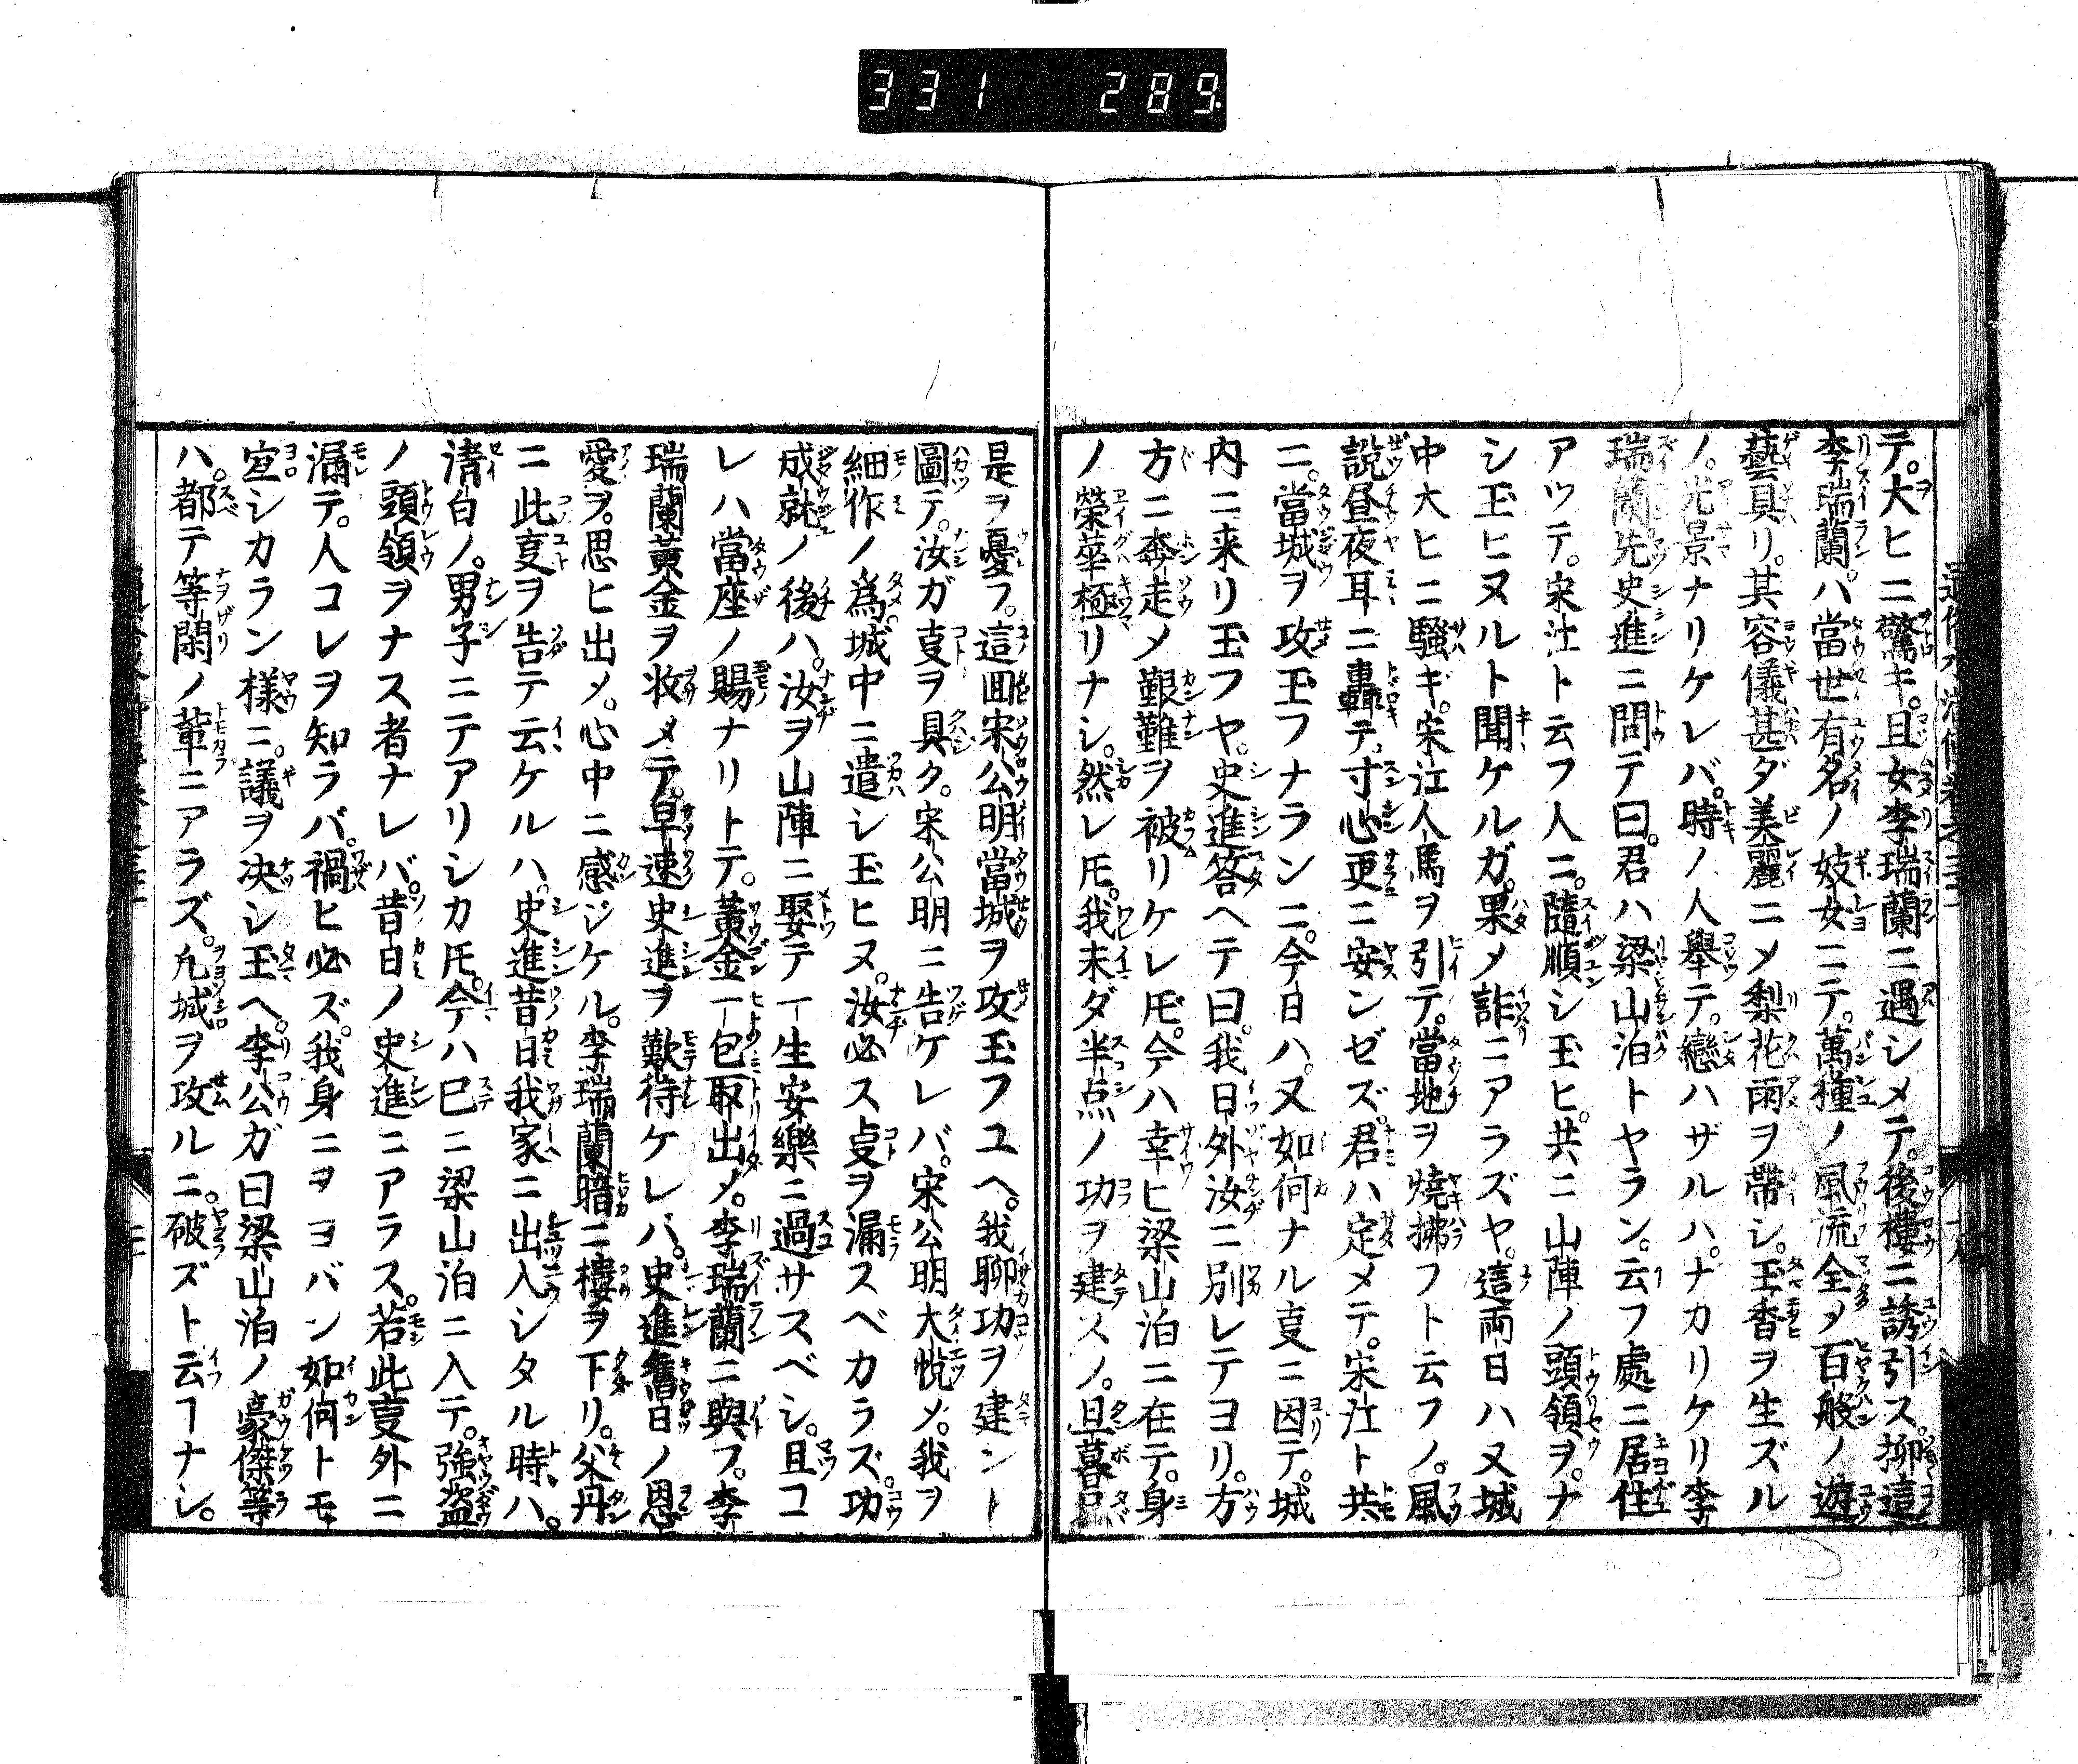 331 289
テ。大ヒニ驚キ。且女李瑞蘭ニ遇シメテ。後樓ニ誘引ス。抑這
李瑞蘭ハ。當世有名ノ妓女ニテ。萬種ノ風流全ヲ百般ノ遊
藝具リ。其容儀甚ダ美麗ニメ梨花雨ヲ帶シ。玉香ヲ生ズル
ノ。光景ナリケレバ。時ノ人舉テ。戀ハザルハ。ナカリケリ李
瑞蘭先史進ニ問テ曰。君ハ梁山泊トヤラン。云フ處ニ居住
アツテ。宋江ト云フ人ニ。隨順シ玉ヒ。共ニ山陣ノ頭領ヲ。ナ
シ玉ヒヌルト聞ケルガ。果メ詐ニアラズヤ。這両日ハ又城
中大ヒニ騷ギ。宋江人馬ヲ引テ。當地ヲ燒拂フト云フノ。風
説昼夜耳ニ轟テ。寸心更ニ安ンゼズ。君ハ定メテ。宋江ト共
ニ。當城ヲ攻玉フナランニ。今日ハ。又如何ナル叓ニ因テ。城
内ニ来リ玉フヤ。史進答ヘテ曰。我日外汝ニ別レテヨリ。方
方ニ奔走メ艱難ヲ被リケレ𪜈。今ハ幸ヒ梁山泊ニ在テ。身
ノ榮華極リナシ。然レ𪜈。我末ダ半点ノ功ヲ建スノ。旦暮只
是ヲ憂フ。這囬宋公明當城ヲ攻玉フユヘ。我聊功ヲ建ント
圖テ。汝ガ叓ヲ具ク。宋公明ニ告ケレバ。宋公明大悦メ。我ヲ
細作ノ爲城中ニ遣シ玉ヒヌ。汝必ス叓ヲ漏スベカラズ。功
成就ノ後ハ。汝ヲ山陣ニ娶テ一生安樂ニ過サスベシ。且コ
レハ當座ノ賜ナリトテ。黄金一包取出メ。李瑞蘭ニ與フ。李
瑞蘭黄金ヲ收メテ。早速史進ヲ歎待ケレバ。史進舊日ノ恩
愛ヲ。思ヒ出メ。心中ニ感ジケル。李瑞蘭暗ニ樓ヲ下リ。父丹
ニ此叓ヲ告テ云ケルハ。史進昔日我家ニ出入シタル時ハ。
清白ノ。男子ニテアリシカ𪜈。今ハ已ニ梁山泊ニ入テ。強盗
ノ頭領ヲナス者ナレバ。昔日ノ史進ニアラス。若此叓外ニ
漏テ。人コレヲ知ラバ。禍ヒ必ズ。我身ニヲヨバン如何トモ
宜シカラン様ニ。議ヲ决シ玉ヘ。李公ガ曰梁山泊ノ豪傑等
ハ。都テ等閑ノ輩ニアラズ。凡城ヲ攻ルニ。破ズト云ヿナシ。